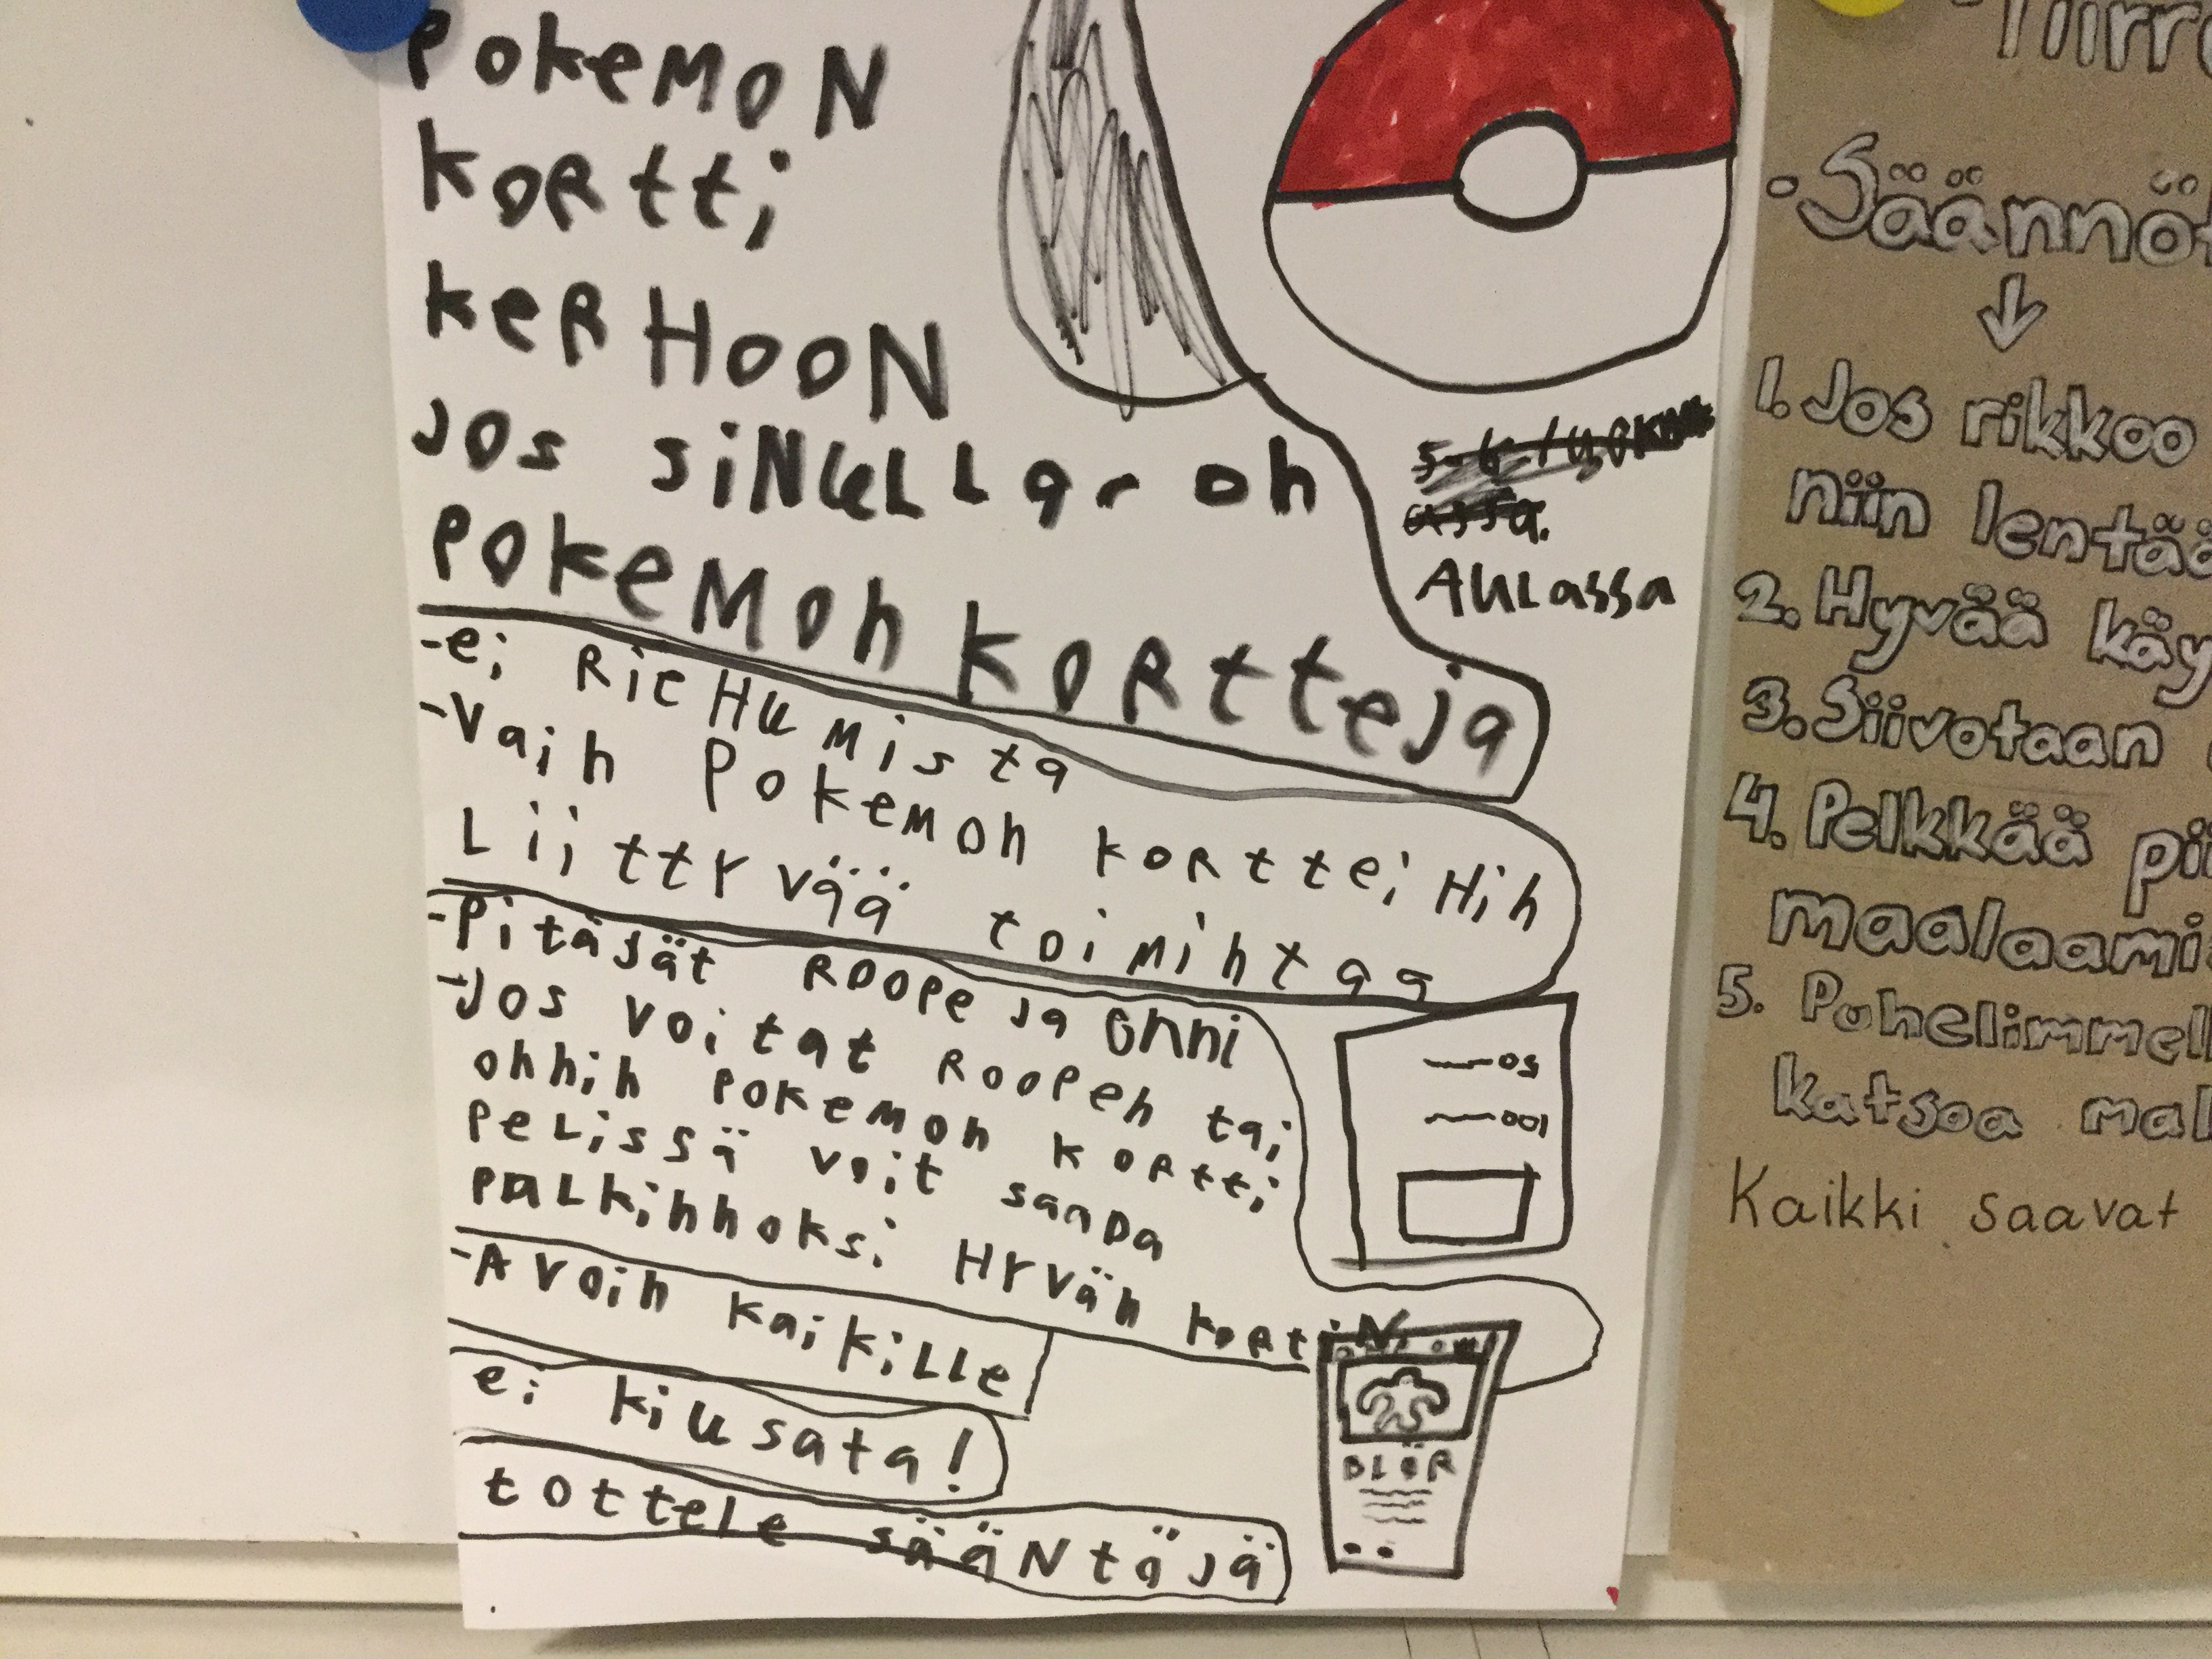 POKEMON
KORtti
KERHOON
JOS SiNULLA on
POKEMON KORtteja
-ei RiEHUMista
-Vain POKEMON KORtteiHin
LiittYvää toimintaa
-Pitäjät ROOPE ja Onni
-JOS Voitat ROOPEn tai
onnin POKEMON KORtti
PELissä voit saaDa
PALKinnoksi HYvän KORtiN.
-Avoin KaiKiLLe
ei Kiusata!
tottele sääNtäjä
AULassa
50
100
Säännöt
↓
1. Jos rikkoo
niin lentää
2. Hyvää
3. Siivotaan
4. Pelkkää
5.
katsoa
Kaikki saavat